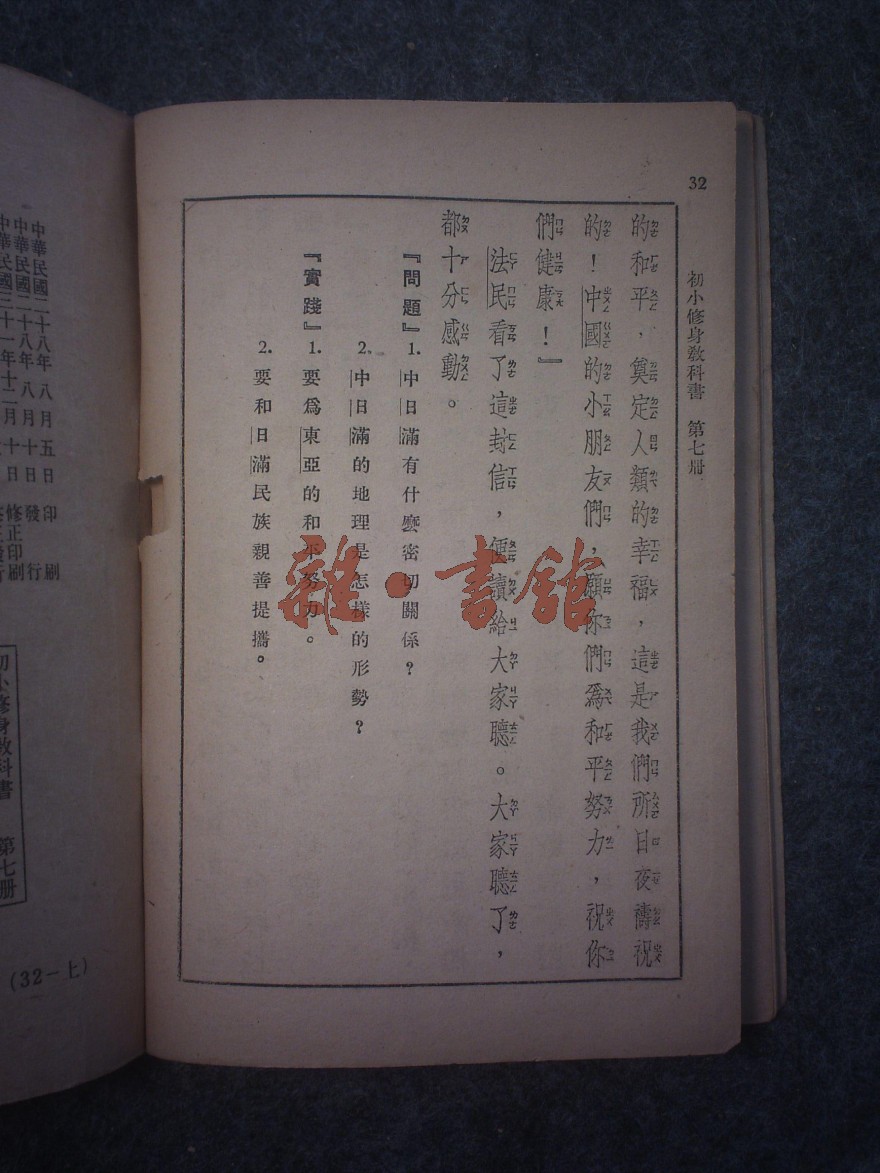 32
初小修身教科書 第七册
的和平，奠定人類的幸福，這是我們所日夜禱祝
的！中國的小朋友們，願你們爲和平努力，祝你
們健康！』
法民看了這封信，便讀給大家聽。大家聽了，
都十分感動。
『問題』1. 中日滿有什麼密切關係？
2. 中日滿的地理是怎樣的形勢？
『實踐』1. 要爲東亞的和平努力。
2. 要和日滿民族親善提攜。
雜·書館
中華民國二十八年 八月 五日 印刷
中華民國二十八年 八月 十日 發行
初小修身教科書 第七册
(32—上)